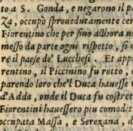 to a S. Gonda, e negarono il p
za, occupò sprovedutamente ce
Fiorentino che per fino allhora n
messo da parte ogni rispetto, si
re il paese de' Lucchesi. Et app
rentino, il Piccinino fu rotto
parendo loro che'l Duca hauesse
d'Adda, onde il Duca fu costret
Fiorentini hauessero piu comodità
occupata Massa, e Serezana,